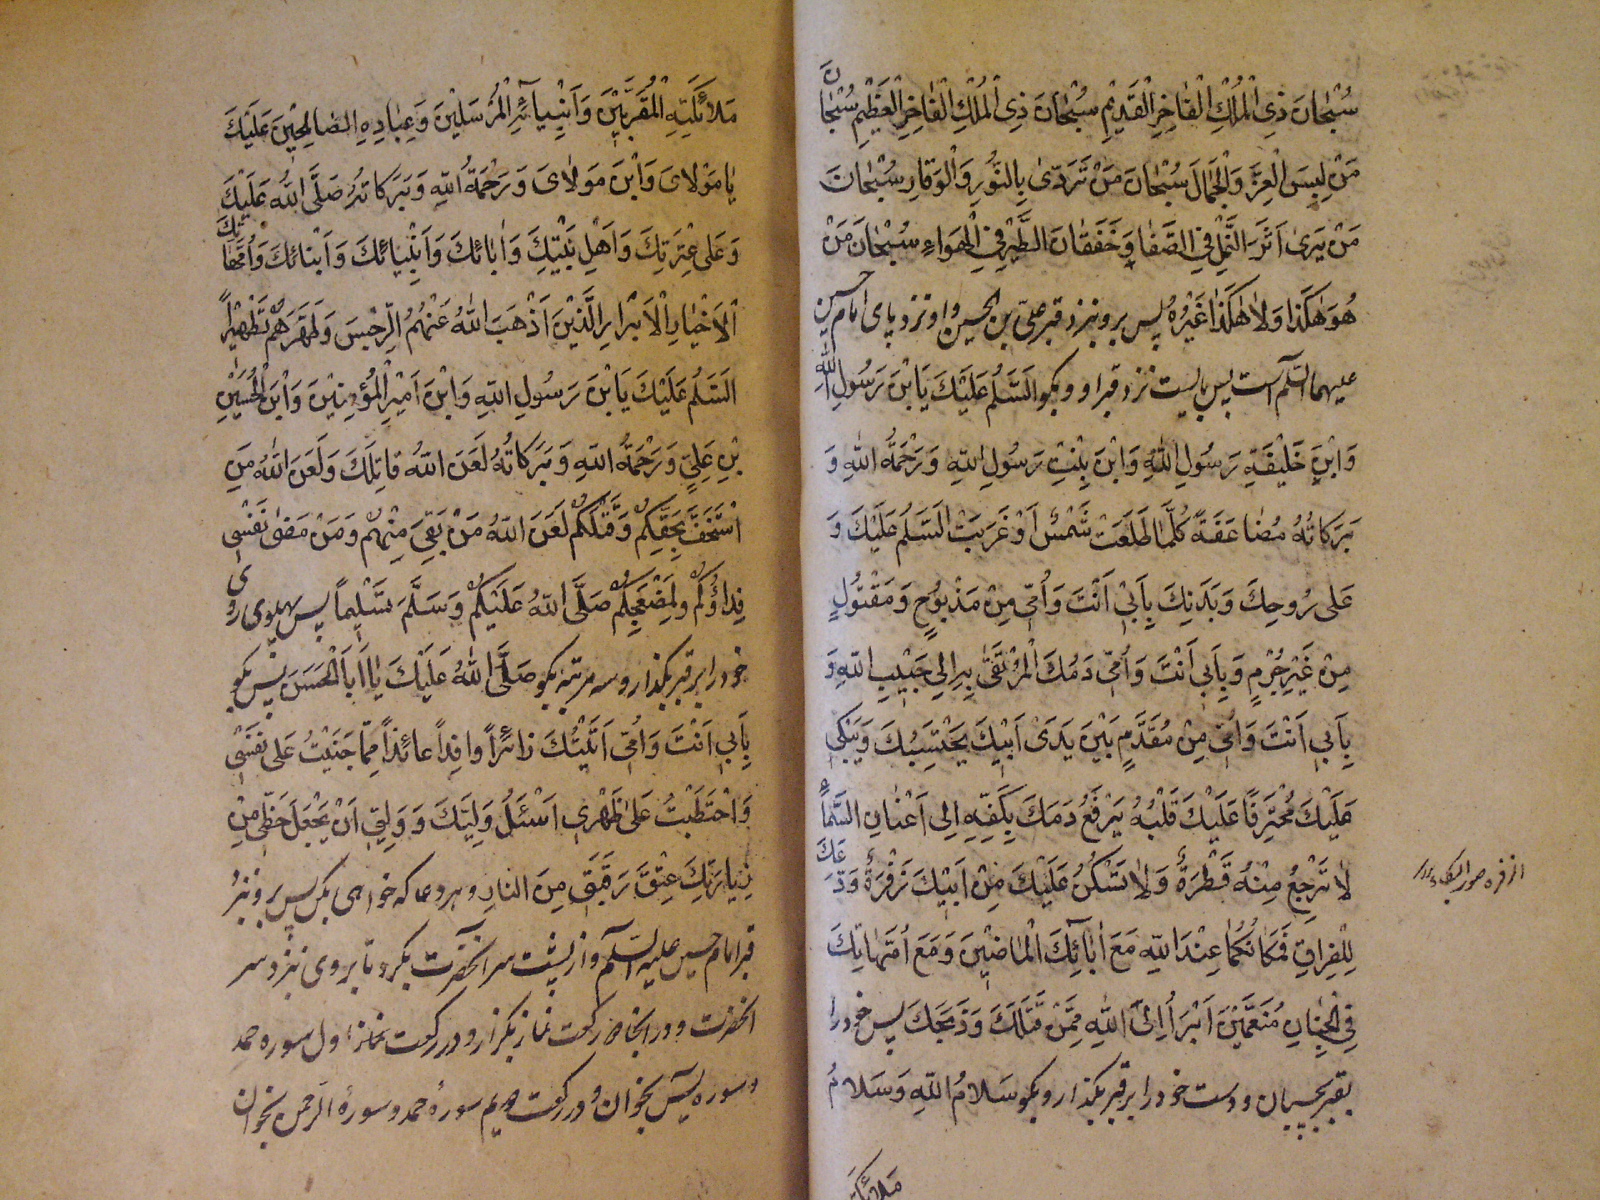 سُبْحَانَ ذِی الْمُلْكِ الْفَاخِرِ الْقَدِیْمِ سُبْحَانَ ذِی الْمُلْكِ الْفَاخِرِ الْعَظِیْمِ سُبْحَانَ
مَنْ لَبِسَ الْعِزَّ وَالْجَمَالَ سُبْحَانَ مَنْ تَرَدّىٰ بِالنُّورِ وَالْوَقَارِ سُبْحَانَ
مَنْ یَرىٰ اَثَرَ النَّمْلِ فِی الصَّفَا وَ خَفَقَانَ الطَّیْرِ فِی الْهَوَاءِ سُبْحَانَ مَنْ
هُوَ هٰكَذَا وَلَا هٰكَذَا غَیْرُهُ پس برو بنزد قبر علیّ بن الحسین و او نزد پای امام حسین
علیهما السّلم است پس بایست نزد قبر او و بگو اَلسَّلٰمُ عَلَیْكَ یَا بْنَ رَسُولِ اللهِ
وَ ابْنَ خَلِیْفَةِ رَسُولِ اللهِ وَ ابْنَ بِنْتِ رَسُولِ اللهِ وَ رَحْمَةُ اللهِ وَ
بَرَكَاتُهُ مُضَاعَفَةً كُلَّمَا طَلَعَتْ شَمْسٌ اَوْ غَرَبَتْ اَلسَّلٰمُ عَلَیْكَ وَ
عَلىٰ رُوحِكَ وَ بَدَنِكَ بِاَبِیْ اَنْتَ وَ اُمِّی مِنْ مَذْبُوحٍ وَ مَقْتُولٍ
مِنْ غَیْرِ جُرْمٍ وَ بِاَبِی اَنْتَ وَ اُمِّی دَمُكَ الْمُرْتَقٰى بِهِ اِلىٰ حَبِیْبِ اللهِ وَ
بِاَبِی اَنْتَ وَ اُمِّی مِنْ مُقَدَّمٍ بَیْنَ یَدَیْ اَبِیْكَ یَحْتَسِبُكَ وَ یَبْكِی
عَلَیْكَ مُحْتَرِقًا عَلَیْكَ قَلْبُهُ یَرْفَعُ دَمَكَ بِكَفِّهِ اِلىٰ اَعْنَانِ السَّمَاءِ
لَا تَرْجِعُ مِنْهُ قَطْرَةٌ وَ لَا تَسْكُنُ عَلَیْكَ مِنْ اَبِیْكَ زَفْرَةٌ وَدَّعَكَ
لِلْفِرَاقِ فَمَكَانُكُمَا عِنْدَ اللهِ مَعَ اٰبَائِكَ الْمَاضِیْنَ وَ مَعَ اُمَّهَاتِكَ
فِی الْجِنَانِ مُنَعَّمِیْنَ اَبْرَأُ اِلَى اللهِ مِمَّنْ قَتَلَكَ وَ ذَبَحَكَ پس خود را
بقبر بچسبان و دست خود را بر قبر بگذار و بگو سَلَامُ اللهِ وَ سَلَامُ
مَلَائِكَتِهِ
مَلَائِكَتِهِ الْمُقَرَّبِیْنَ وَ اَنْبِیَائِهِ الْمُرْسَلِیْنَ وَ عِبَادِهِ الصَّالِحِیْنَ عَلَیْكَ
یَا مَوْلَایَ وَ ابْنَ مَوْلَایَ وَ رَحْمَةُ اللهِ وَ بَرَكَاتُهُ صَلَّى اللهُ عَلَیْكَ
وَ عَلىٰ عِتْرَتِكَ وَ اَهْلِ بَیْتِكَ وَ اٰبَائِكَ وَ اَنْبِیَائِكَ وَ اَبْنَائِكَ وَ اُمَّهَاتِكَ
اَلْاَخْیَارِ الْاَبْرَارِ الَّذِیْنَ اَذْهَبَ اللهُ عَنْهُمُ الرِّجْسَ وَ طَهَّرَهُمْ تَطْهِیْرًا
اَلسَّلٰمُ عَلَیْكَ یَا بْنَ رَسُولِ اللهِ وَ ابْنَ اَمِیْرِ الْمُؤْمِنِیْنَ وَ ابْنَ الْحُسَیْنِ
بْنِ عَلِیٍّ وَ رَحْمَةُ اللهِ وَ بَرَكَاتُهُ لَعَنَ اللهُ قَاتِلَكَ وَ لَعَنَ اللهُ مَنِ
اسْتَخَفَّ بِحَقِّكُمْ وَ قَتَلَكُمْ لَعَنَ اللهُ مَنْ بَقِیَ مِنْهُمْ وَ مَنْ مَضىٰ نَفْسِی
فِدَاؤُكُمْ وَ لِمَضْجَعِكُمْ صَلَّى اللهُ عَلَیْكُمْ وَ سَلَّمَ تَسْلِیمًا پس پهلوی روی
خود را بر قبر بگذار و سه مرتبه بگو صَلَّى اللهُ عَلَیْكَ یَا اَبَا الْحَسَنِ پس بگو
بِاَبِی اَنْتَ وَ اُمِّی اَتَیْتُكَ زَائِرًا وَافِدًا عَائِذًا مِمَّا جَنَیْتُ عَلىٰ نَفْسِی
وَ احْتَطَبْتُ عَلىٰ ظَهْرِی اَسْئَلُ وَلِیَّكَ وَ وَلِیِّی اَنْ یَجْعَلَ حَظِّی مِنْ
زِیَارَتِكَ عِتْقَ رَقَبَتِی مِنَ النَّارِ و هر دعا که خواهی بکن پس برو بنزد
قبر امام حسین علیه السّلم و از پشت سر آنحضرت بگرد تا بروی بنزد سر
آنحضرت و در آنجا دو رکعت نماز بگزار و در رکعت نماز اول سوره حمد
و سوره یٓس بخوان و در رکعت دویم سورهٔ حمد و سورهٔ الرحمن بخوان